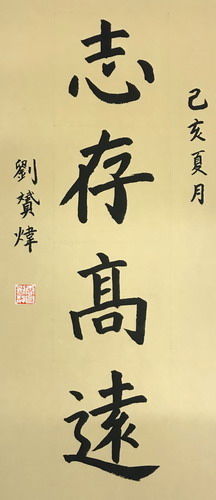 己亥夏月
志存高遠
劉贇煒